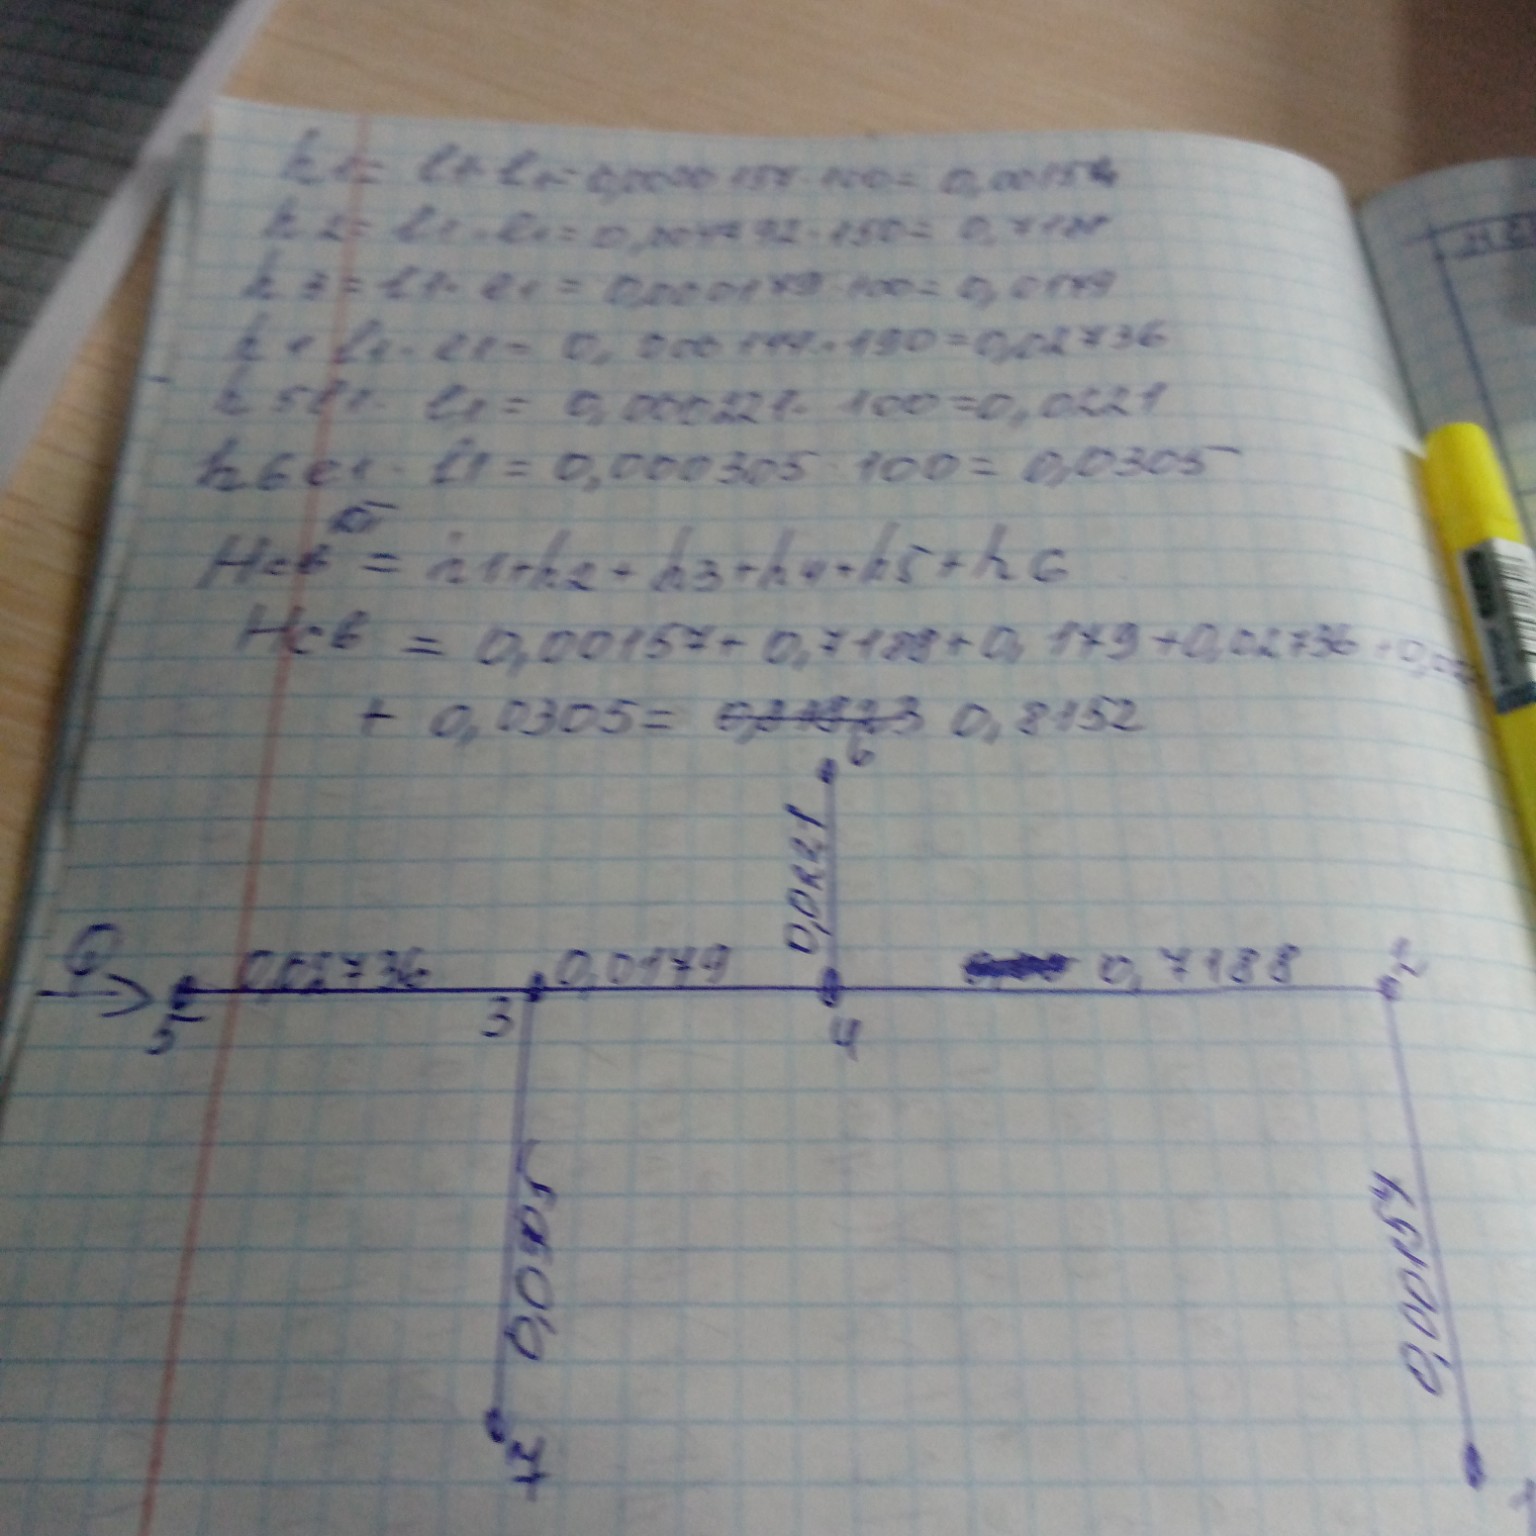 h1= l1·l1=0,0000157·100=0,00157
h2= l1·l1=0,004792·150=0,7188
h3=l1·l1=0,000179·100=0,0179
h4 l1·l1=0,000144·190=0,02736
h5l1·l1=0,000221·100=0,0221
h6l1·l1=0,000305·100=0,0305
Hсв = h1+h2+h3+h4+h5+h6
Hсв = 0,00157+0,7188+0,179+0,02736+0,02
+0,0305= 0,8152
6
0,0221
Q 0,02736 0,0179 0,7188 2
5 3 4
0,0305
0,00157
7